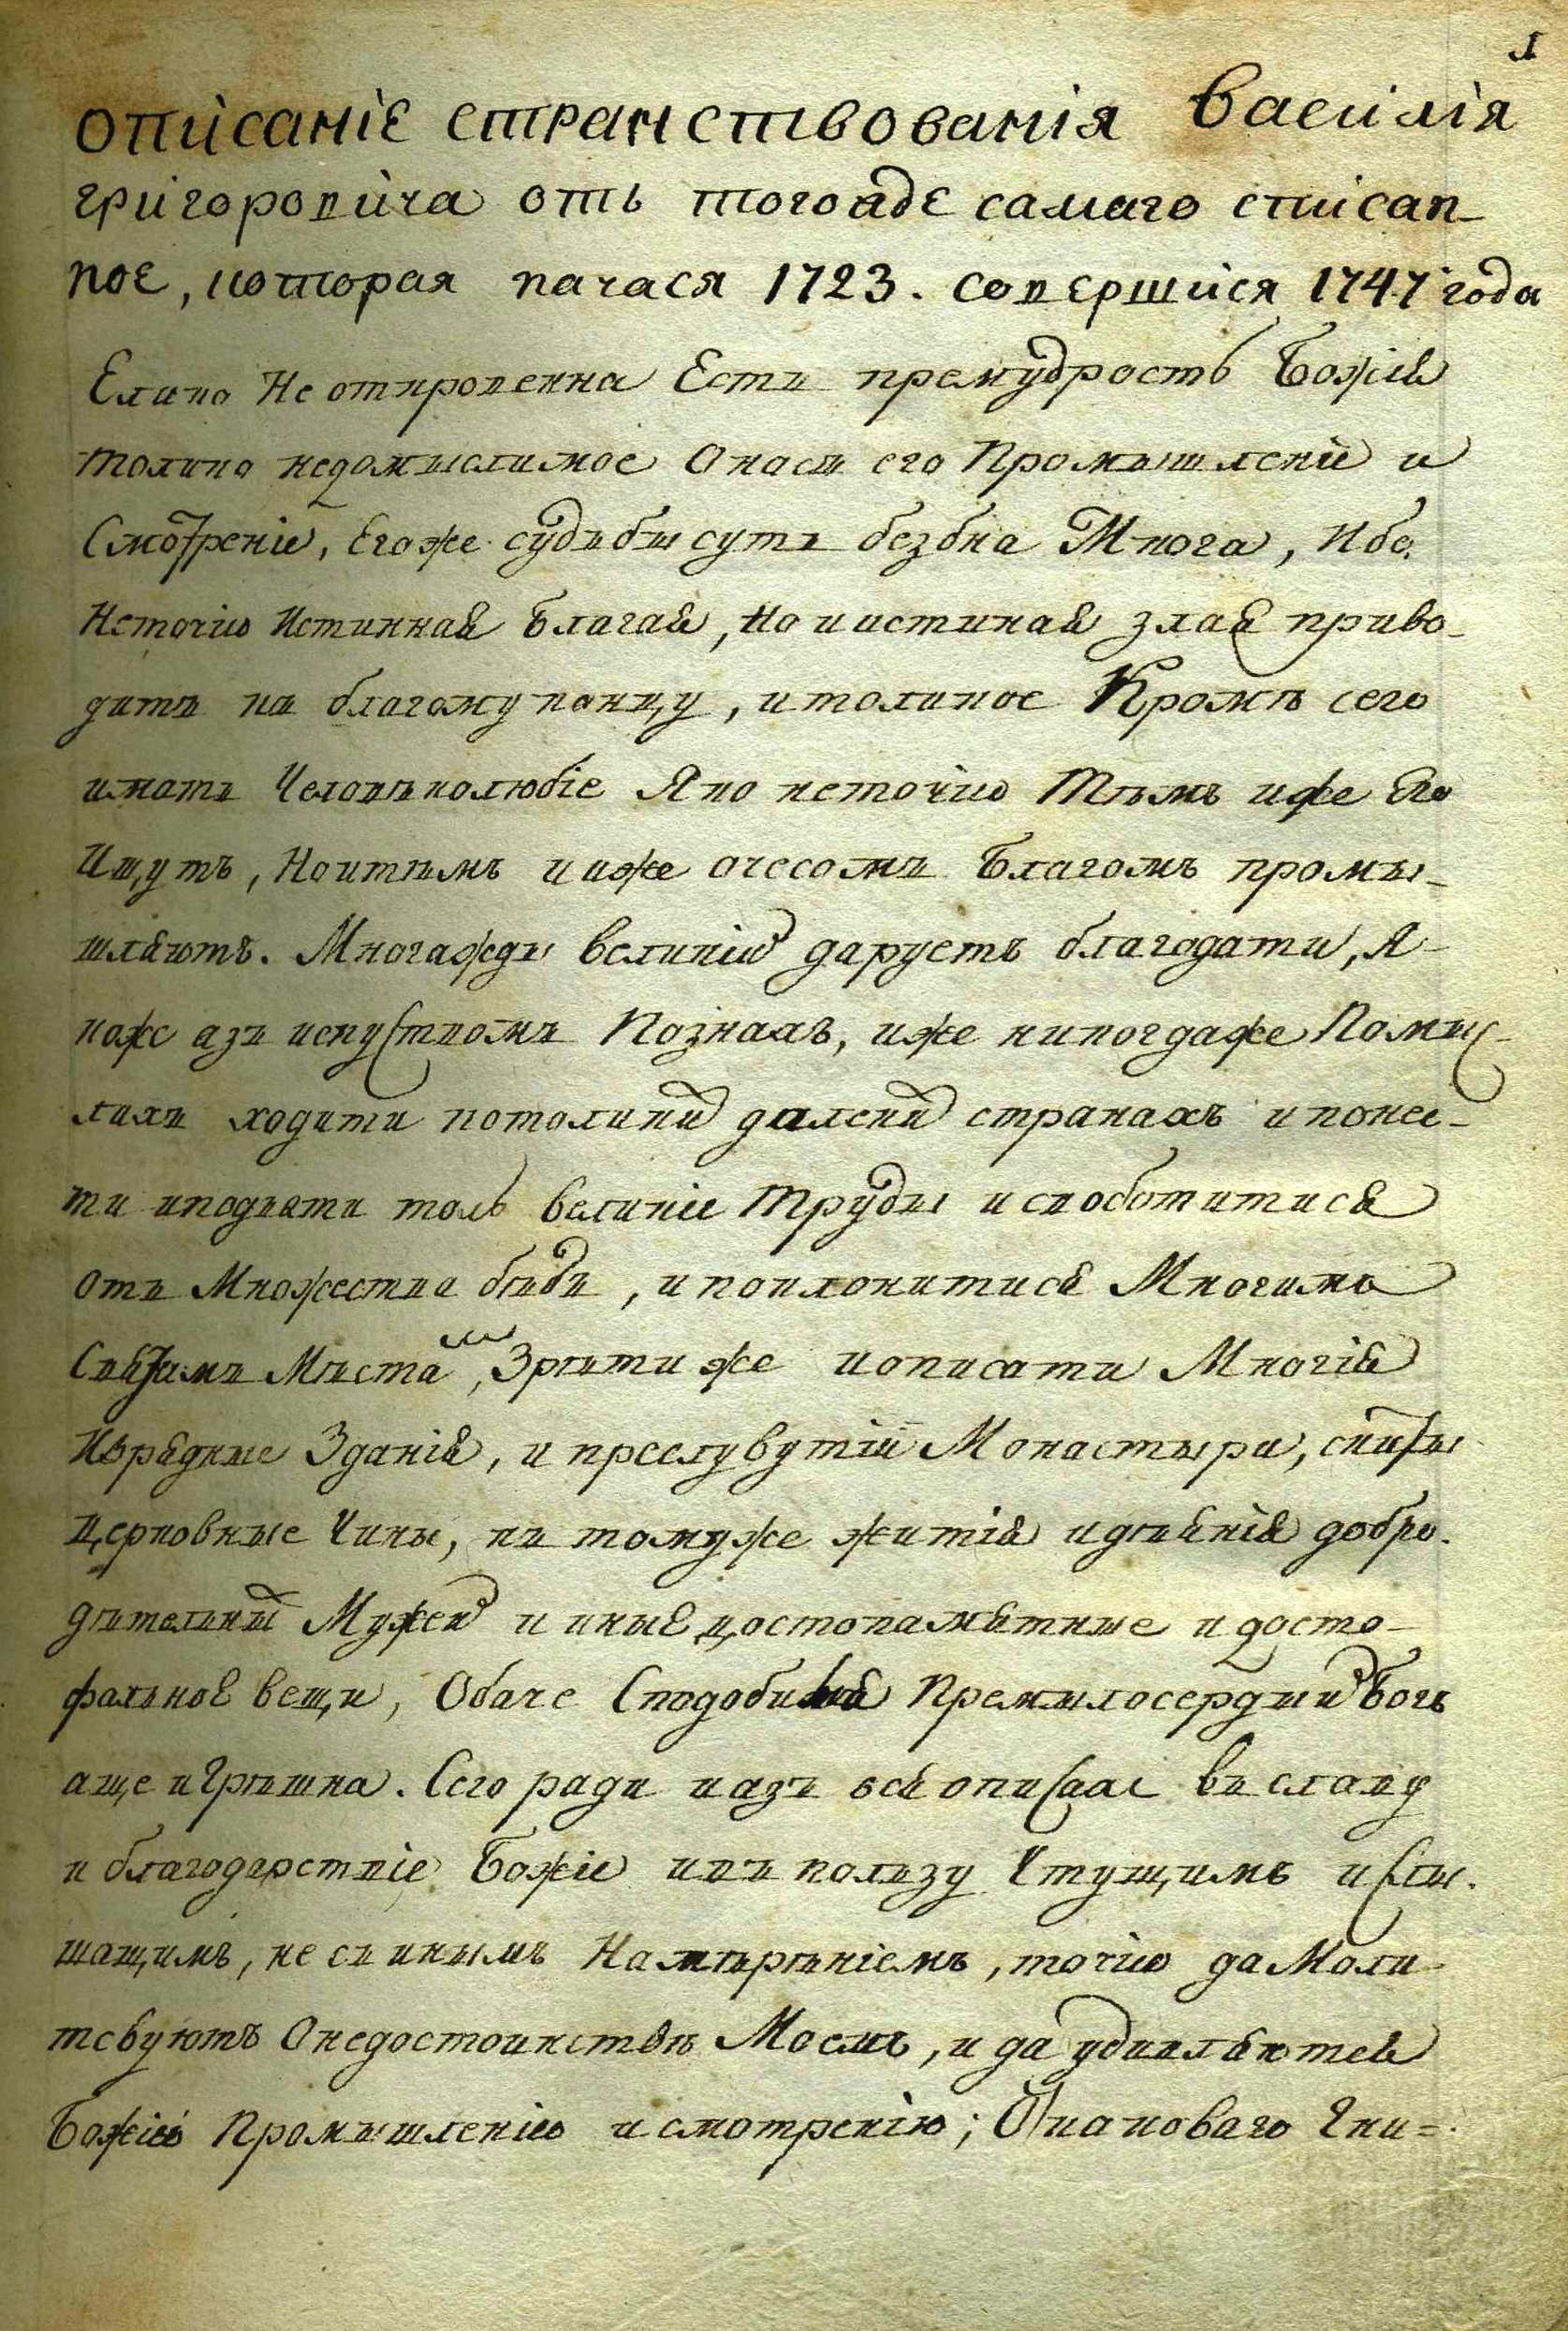 1
Описаніе странствованія Василія
григоровича отъ тогожде самаго списан-
ное, которая начася 1723. совершися 1747 года
Елико Не откровенна Есть премудрость Божія
толико недомыслимое О насъ его Промышленіе и
Смотреніе, Егоже судьбы суть бездна Многа, Ибо
Неточію Истинная благая, Но и истиная злая приво-
дитъ къ благому концу, и толикое Кромѣ сего
имать Человѣколюбіе Яко неточію Тѣмъ иже Его
Ищутъ, Но и тѣмъ и иже очесомъ Благомъ промы-
шляютъ. Многажды великія даруетъ благодати, Я-
коже азъ искуствомъ Познахъ, иже никогдаже Помыс-
лихъ ходити по толики далеки странахъ и понес-
ти и подъяти толь великіе труды и свободитися
отъ Множества бѣдъ, и поклонитися Многимъ
Святымъ Мѣстамъ, Зрѣти же и описати Многія
Изрядные Зданія, и преслувутіи Монастыри, скиты
Церковные Чины, къ томуже житія и дѣянія добро-
дѣтельны Мужей и иные достопамятные и досто-
фальное вещи, Обаче Сподоби Премилосердый Богъ
аще и Грѣшна. Сего ради и азъ вся описахъ въ славу
и благодарствіе Божіе и въ ползу Чтущимъ и слы-
шащимъ, не съ инымъ Намѣрѣніемъ, точію да Моли-
тсвуютъ О недостоинствѣ Моемъ, и да удивляются
Божію Промышленію и смотренію; О каковаго Яки=